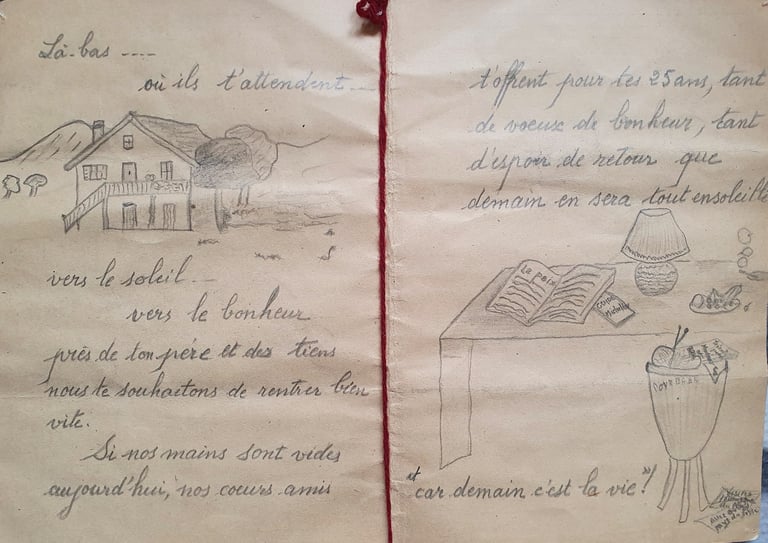 Là-bas ----
où ils t'attendent --
vers le soleil --
vers le bonheur
près de ton père et des tiens
nous te souhaitons de rentrer bien
vite.
Si nos mains sont vides
aujourd'hui, nos coeurs amis
t'offrent pour tes 25 ans, tant
de voeux de bonheur, tant
d'espoir de retour que
demain en sera tout ensoleillé
La paix
"et car demain c'est la vie!"